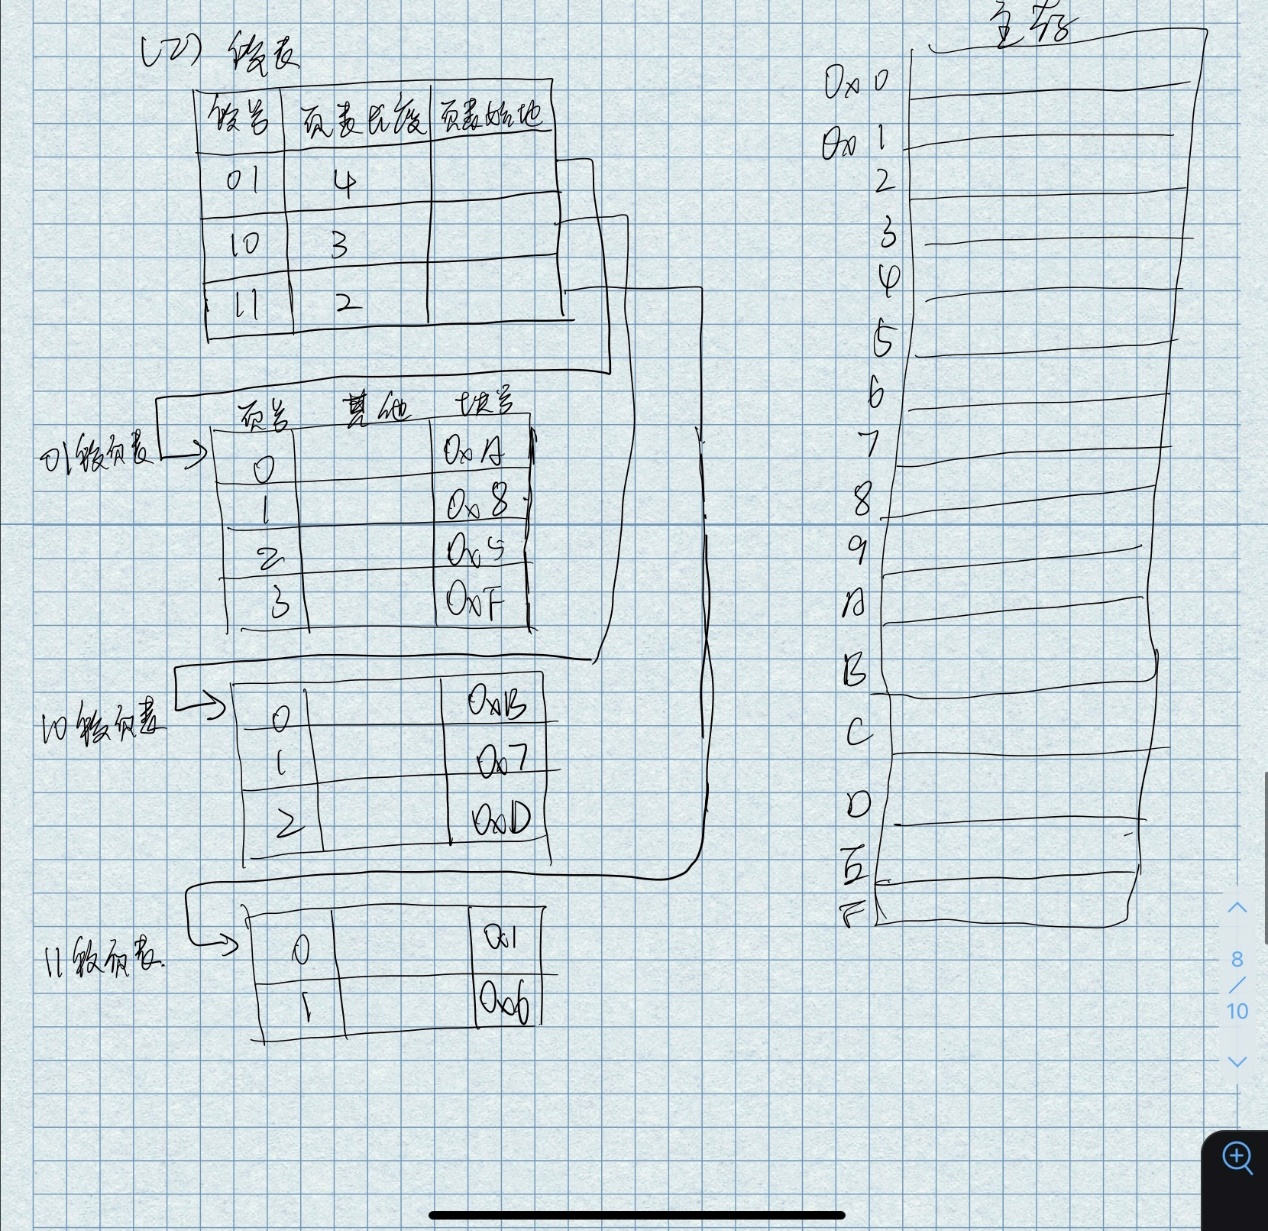 (2) 段表
段号 页表长度 页表始地
01 4
10 3
11 2
页号 其他 块号
01段页表
0 0xA
1 0x8
2 0x5
3 0xF
10段页表
0 0xB
1 0x7
2 0xD
11段页表.
0 0x1
1 0x6
主存
0x0
0x1
2
3
4
5
6
7
8
9
A
B
C
D
E
F
8
/
10